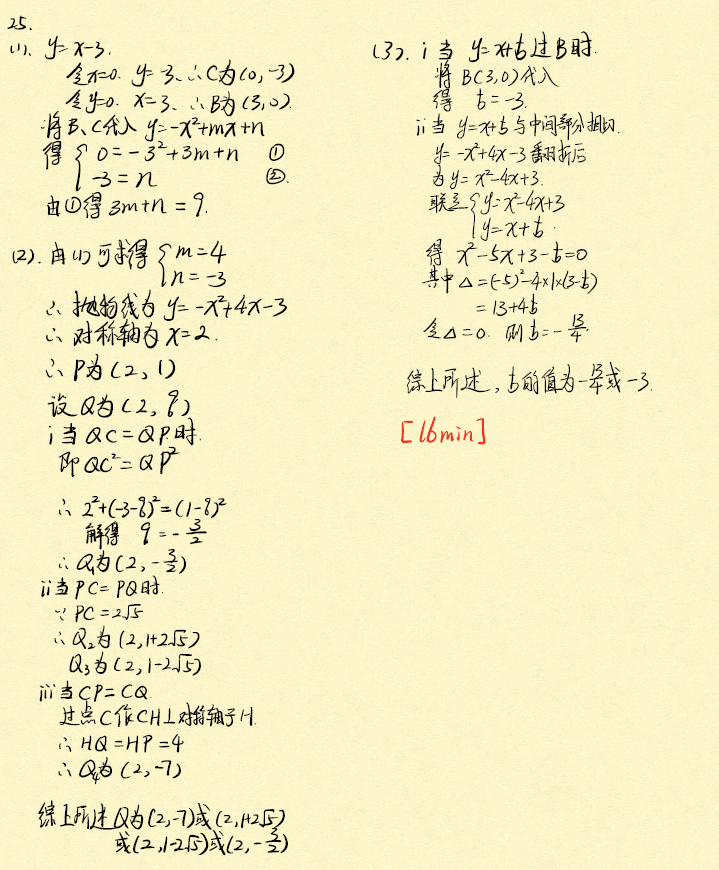 25.
(1). y=x-3.
令x=0. y=-3. ∴C为(0,-3)
令y=0. x=3. ∴B为(3,0).
将B、C代入 y=-x²+mx+n
得 { 0=-3²+3m+n ①
-3=n ②.
由①得3m+n=9.
(2). 由(1)可求得 { m=4
n=-3
∴抛物线为 y=-x²+4x-3
∴对称轴为 x=2.
∴P为(2,1)
设Q为(2,q)
i当QC=QP时.
即QC²=QP²
∴2²+(-3-q)²=(1-q)²
解得 q=-3/2
∴Q₁为(2,-3/2)
ii当PC=PQ时.
∵PC=2√5
∴Q₂为(2,1+2√5)
Q₃为(2,1-2√5)
iii当CP=CQ.
过点C作CH⊥对称轴于H.
∴HQ=HP=4
∴Q₄为(2,-7)
综上所述Q为(2,-7)或(2,1+2√5)
或(2,1-2√5)或(2,-3/2)
(3). i当 y=x+b过B时.
将B(3,0)代入
得 b=-3.
ii当 y=x+b与中间部分相切.
y=-x²+4x-3翻折后
为y=x²-4x+3.
联立 { y=x²-4x+3
y=x+b.
得 x²-5x+3-b=0
其中△=(-5)²-4×1×(3-b)
=13+4b
令△=0. 则b=-13/4.
综上所述, b的值为-13/4或-3.
[16min]